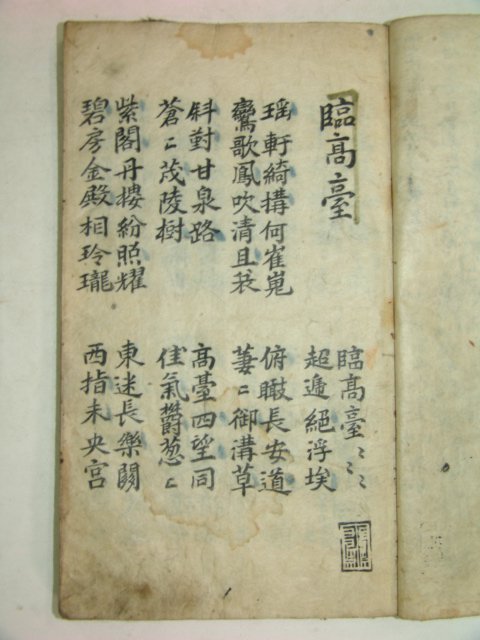 臨髙臺
臨髙臺〻〻
超遞絕浮埃
瑶軒綺搆何崔嵬
鸞歌鳳吹清且哀
俯瞰長安道
萋〻御溝草
斜對甘泉路
蒼〻茂陵樹
髙臺四望同
佳氣欝葱〻
紫閣丹樓紛照耀
碧房金殿相玲瓏
東迷長樂闕
西指未央宮